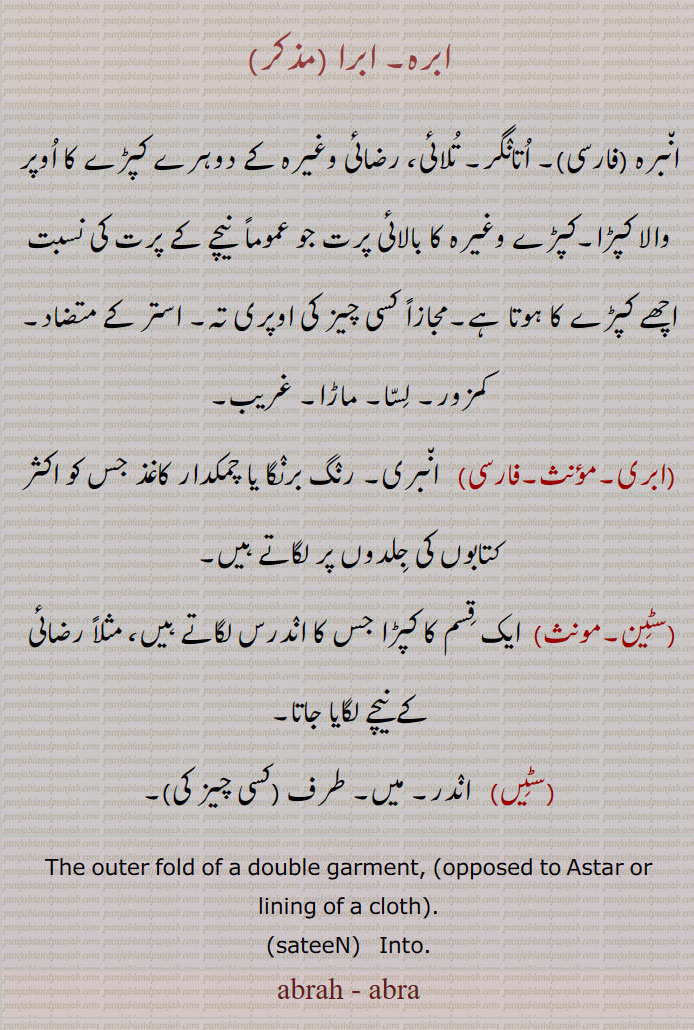 ابرہ۔ ابرا (مذکر)
انّبرہ (فارسی)۔ اُتانْگر۔ تُلائی، رضائی وغیرہ کے دوہرے کپڑے کا اُوپر
والا کپڑا۔کپڑے وغیرہ کا بالائی پرت جو عموماً نیچے کے پرت کی نسبت
اچھے کپڑے کا ہوتا ہے۔مجازاً کسی چیز کی اوپری تہ۔ استر کے متضاد۔
کمزور۔ لِسّا۔ ماڑا۔ غریب۔
(ابری۔مؤنث۔فارسی) انّبری۔ رنْگ برنْگا یا چمکدار کاغذ جس کو اکثر
کتابوں کی جِلدوں پر لگاتے ہیں۔
(سٹِین۔مونث) ایک قِسم کا کپڑا جس کا انْدرس لگاتے ہیں، مثلاً رضائی
کے نیچے لگایا جاتا۔
(سٹِیں) انْدر۔ میں۔ طرف (کسی چیز کی)۔
The outer fold of a double garment, (opposed to Astar or
lining of a cloth).
(sateeN) Into.
abrah - abra